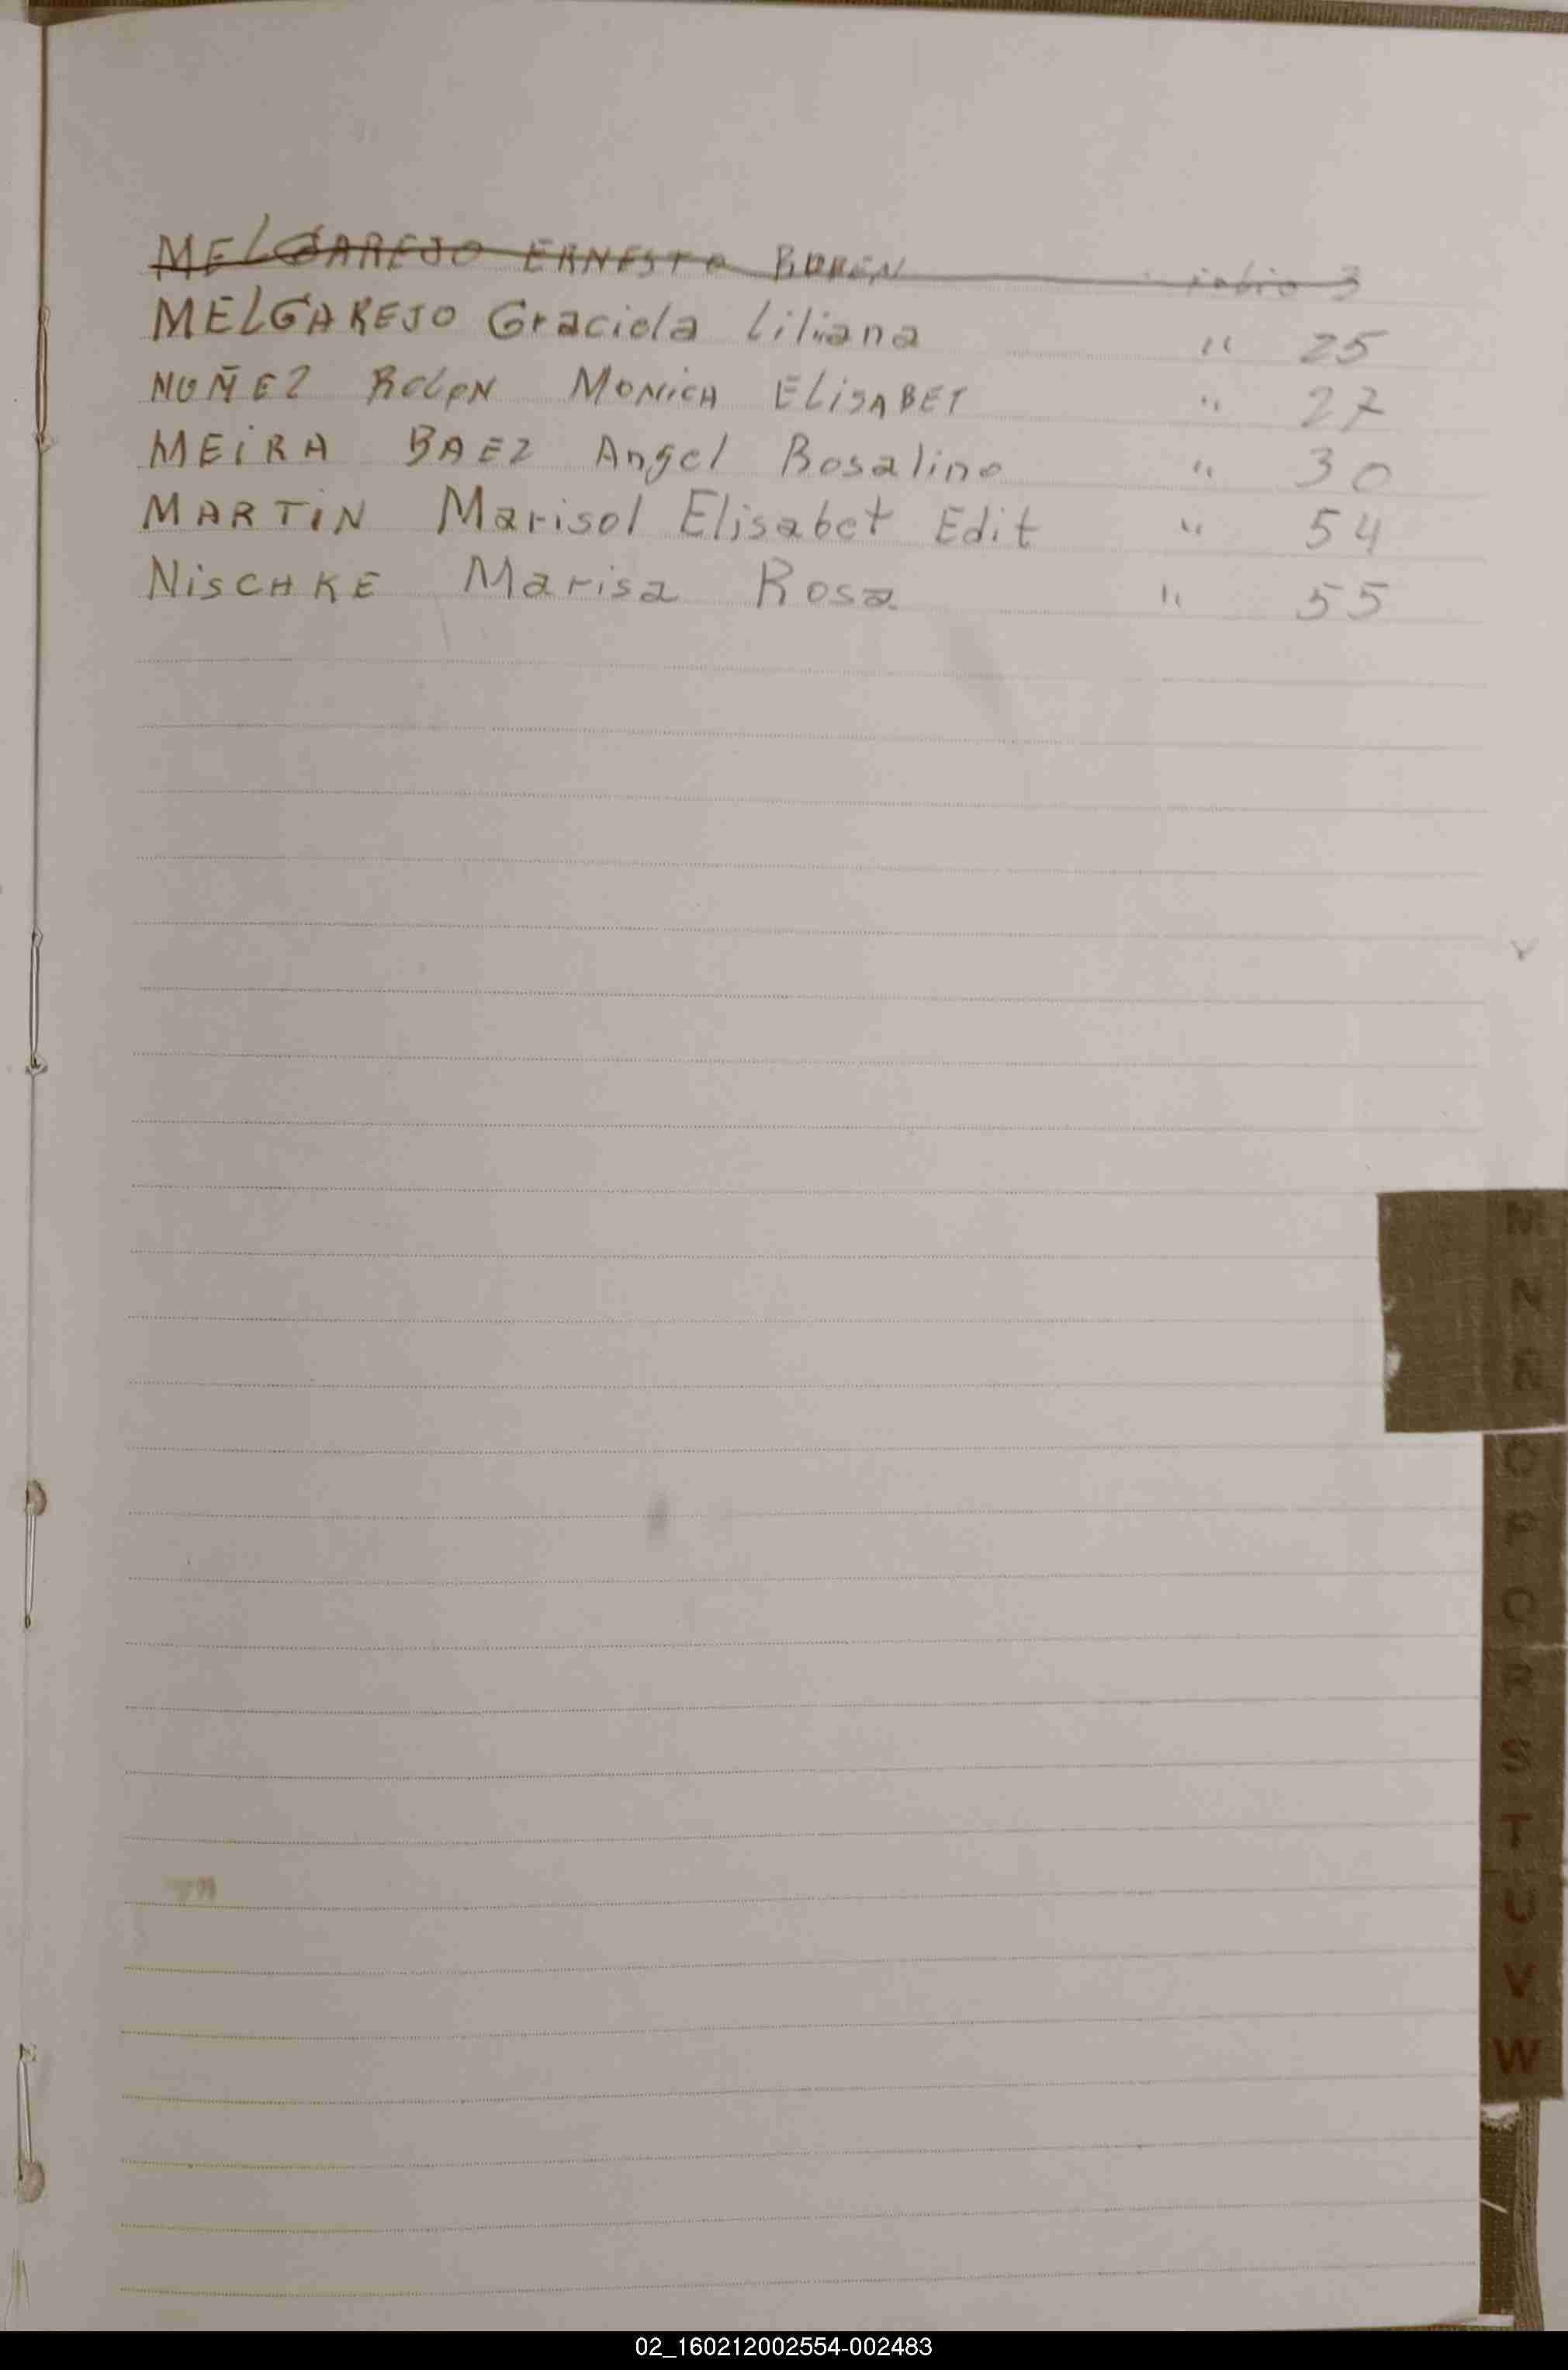 MELGAREJO ERNESTO RUBEN folio 3
MELGAREJO Graciela Liliana " 25
NUÑEZ ROLON MONICA ELISABET " 27
MEIRA BAEZ Angel Rosalino " 30
MARTIN Marisol Elisabet Edit " 54
NISCHKE Marisa Rosa " 55
M
N
Ñ
O
P
Q
R
S
T
U
V
W
02_160212002554-002483